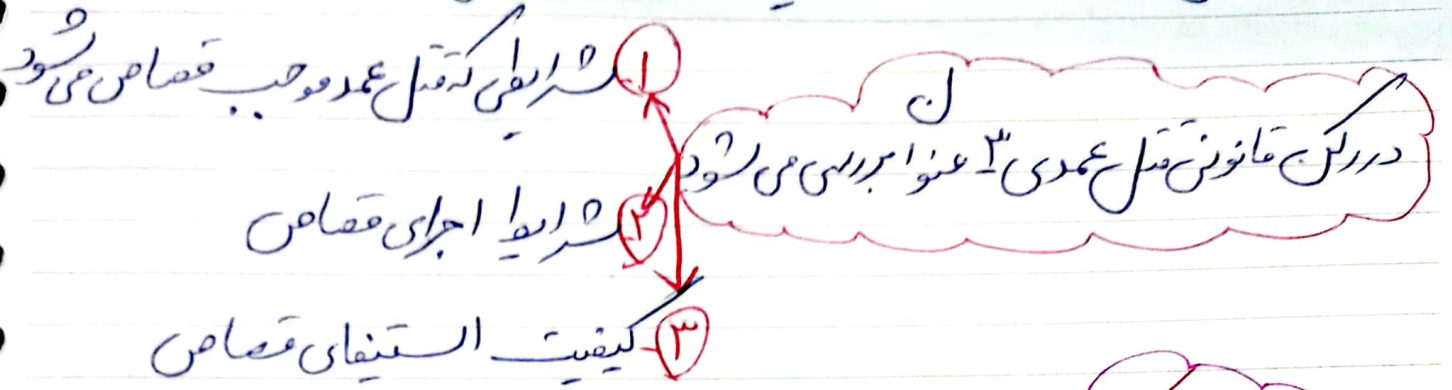 در رکن قانونی قتل عمدی ۳ عنوان بررسی می شود
۱ شرایطی که قتل عمد موجب قصاص می شود
۲ شرایط اجرای قصاص
۳ کیفیت استیفای قصاص